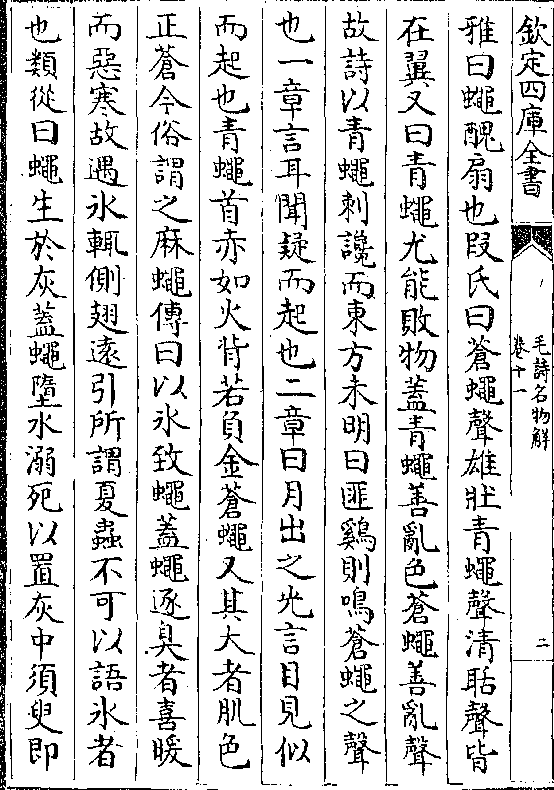 欽定四庫全書
毛詩名物解
卷十一
二
雅曰蠅醜扇也段氏曰蒼蠅聲雄壯青蠅聲清聒聲皆
在翼又曰青蠅尤能敗物蓋青蠅善亂色蒼蠅善亂聲
故詩以青蠅刺讒而東方未明曰匪鷄則鳴蒼蠅之聲
也一章言耳聞疑而起也二章曰月出之光言目見似
而起也青蠅首赤如火背若負金蒼蠅又其大者肌色
正蒼今俗謂之麻蠅傳曰以氷致蠅蓋蠅逐臭者喜暖
而惡寒故遇氷輒側翅逺引所謂夏蟲不可以語氷者
也類從曰蠅生於灰蓋蠅墮水溺死以置灰中須臾即